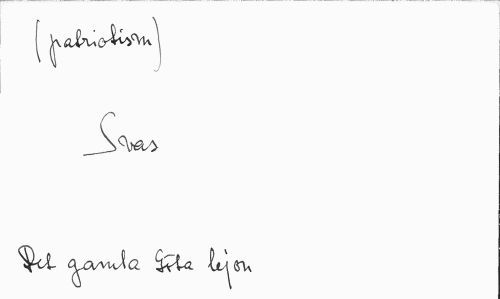 (patriotism)
Svas
Det gamla Göta lejon